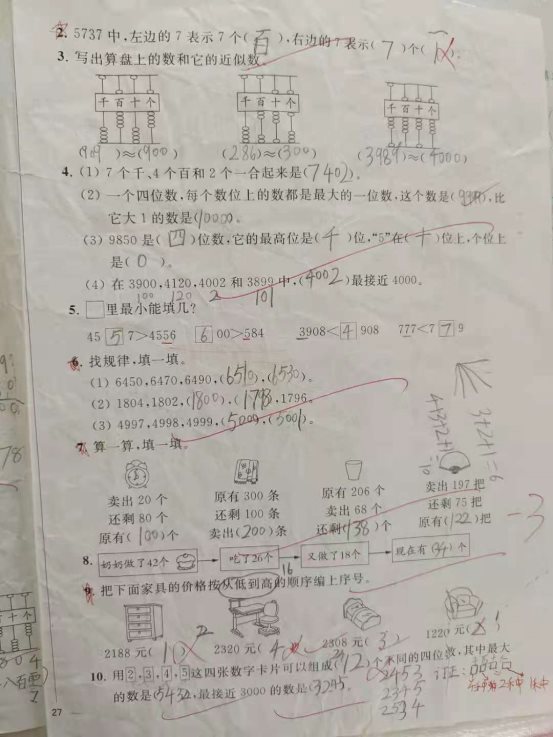 2. 5737中,左边的7表示7个(百),右边的7表示(7)个(一)。
3. 写出算盘上的数和它的近似数。
千百十个 千百十个 千百十个
(909)≈(900) (286)≈(300) (3989)≈(4000)
4. (1) 7个千、4个百和2个一合起来是(7402)。
(2) 一个四位数,每个数位上的数都是最大的一位数,这个数是(9999),比
它大1的数是(10000)。
(3) 9850是(四)位数,它的最高位是(千)位,“5”在(十)位上,个位上
是(0)。
(4) 在3900,4120,4002和3899中,(4002)最接近4000。
100 120 2 101
5. □里最小能填几?
45 5 7>4556 6 00>584 3908<4 908 777<7 7 9
6. 找规律,填一填。
(1) 6450,6470,6490,(6510),(6530)。
(2) 1804,1802,(1800),(1798),1796。
(3) 4997,4998,4999,(5000),(5001)。
7. 算一算,填一填。
卖出20个 原有300条 原有206个 卖出197把
还剩80个 还剩100条 卖出68个 还剩75把
原有(100)个 卖出(200)条 还剩(138)个 原有(122)把
-3
8. 奶奶做了42个 吃了26个 又做了18个 现在有(34)个
16
9. 把下面家具的价格按从低到高的顺序编上序号。
2188元(1) 2 2320元(4) 2308元(3) 1220元(2) 1
10. 用2,3,4,5这四张数字卡片可以组成(12)个不同的四位数,其中最大
的数是(5432),最接近3000的数是(3245)。
2453
2345
2534
27